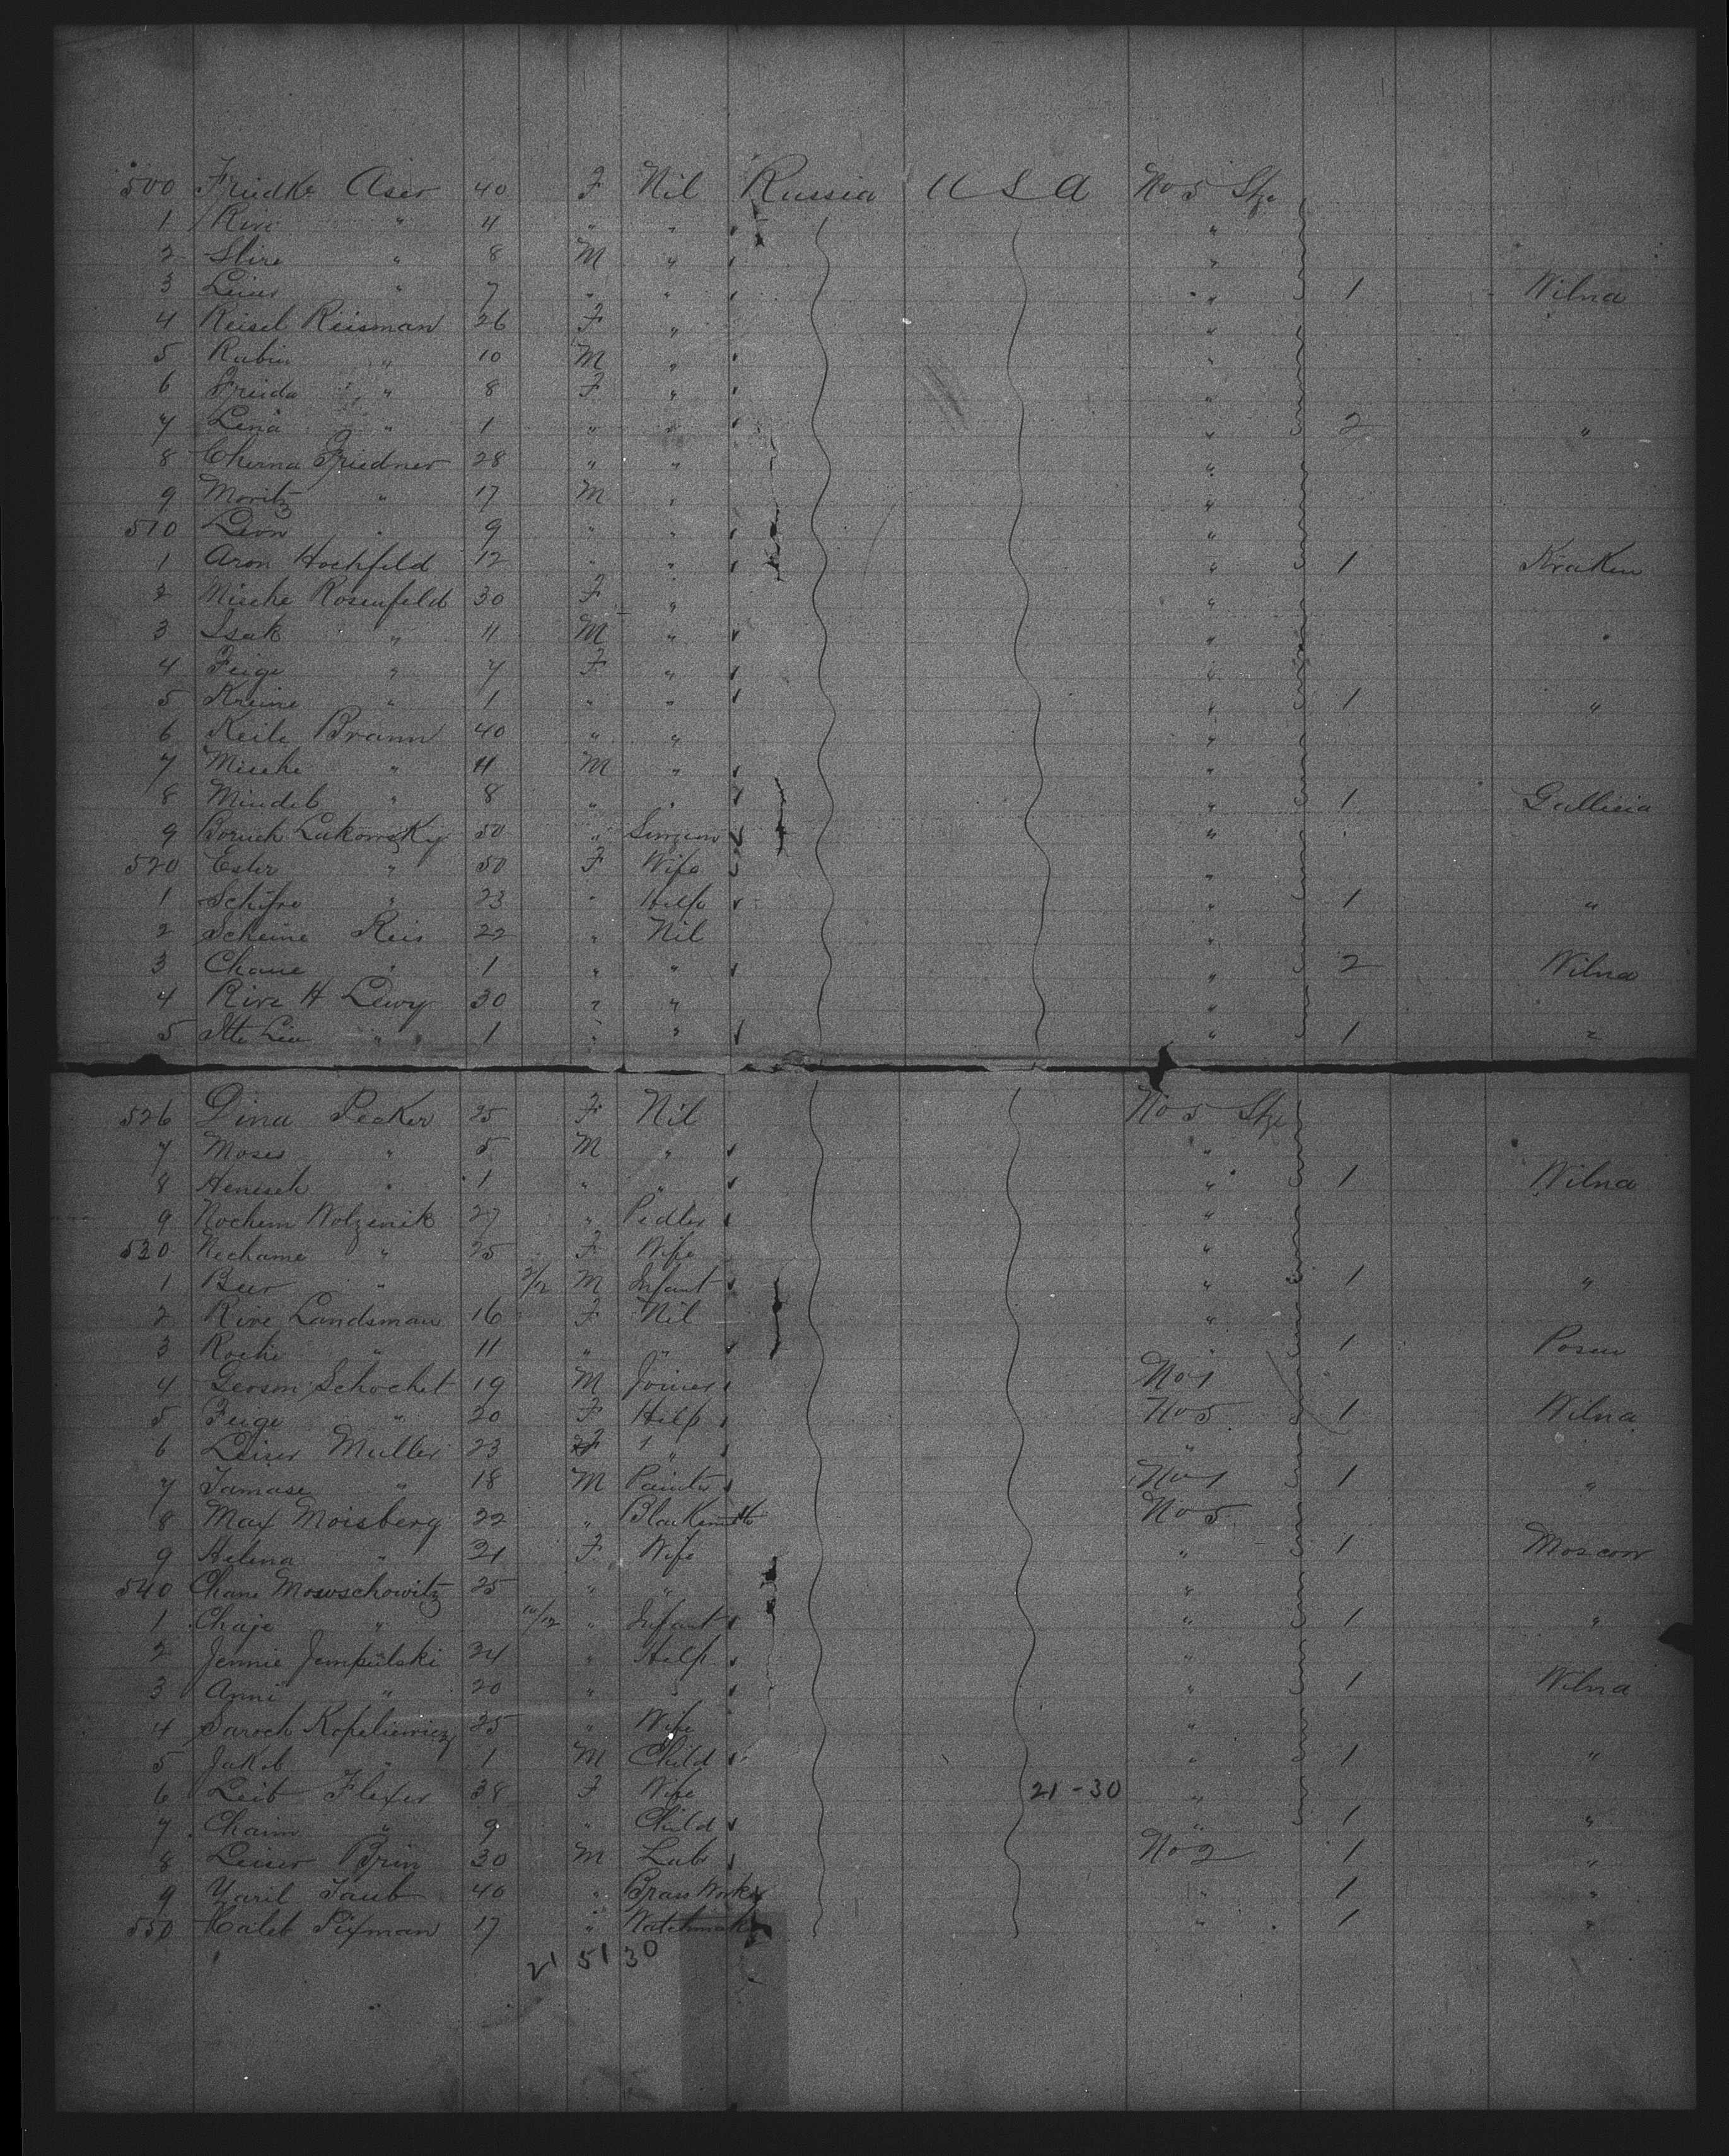 500 Friedke Aser 40 F Nil Russia U S A No 5 Stge
1 Rive " 4 " " "
2 Slire " 8 M " "
3 Leiser " 7 " " " 1 Wilna
4 Reisel Reisman 26 F " "
5 Rubin " 10 M " "
6 Freida " 8 F " "
7 Lena " 1 " " " 2 "
8 Cherna Friedner 28 " " "
9 Moritz " 17 M " "
510 Leon " 9 " " "
1 Aron Hochfeld 12 " " " 1 Kraken
2 Mische Rosenfeld 30 F " "
3 Isak " 11 M " "
4 Feige " 7 F " "
5 Kreine " 1 " " " 1 "
6 Keile Brann 40 " " "
7 Mische " 11 M " "
8 Mindel " 8 " " " 1 Gallicia
9 Boruch Lukowsky 50 " "
520 Ester " 50 F Wife "
1 Schifre " 23 " Help " 1 "
2 Scheine Reis 22 " Nil "
3 Chane " 1 " " " 2 Wilna
4 Rive H Lewy 30 " " "
5 Itte Lie " 1 " " " 1 "
526 Dina Pecker 25 F Nil No 5 Stge
7 Moses " 5 M " "
8 Henisch " 1 " " " 1 Wilna
9 Nochem Wolzenik 27 " Pedler "
530 Nechame " 25 F Wife "
1 Beer " 2/12 M Infant " 1 "
2 Rive Landsman 16 F Nil "
3 Roche " 11 " " " 1 Posen
4 Gerson Schochet 19 M Joiner No 1
5 Feige " 20 F Help No 5 1 Wilna
6 Leiser Muller 23 F " "
7 Tamase " 18 M Painter No 1 1 "
8 Max Moisberg 22 " Blacksmith No 5
9 Helena " 21 F Wife " 1 Moscow
540 Chane Mowschowitz 25 " " "
1 Chaje " 10/12 " Infant " 1 "
2 Jennie Jempulski 24 " Help "
3 Anni " 20 " " " 1 Wilna
4 Saroch Kopeliewicz 25 " Wife "
5 Jakob " 1 M Child " 1 "
6 Leib Flexer 38 F Wife 21-30 "
7 Chaim " 9 " Child " 1 "
8 Leiser Brin 30 M Lab No 2 1 "
9 Yaril Taub 40 " Brass Worker " 1 "
550 Kaleb Pixman 17 " Watchmaker " 1 "
21 51 30